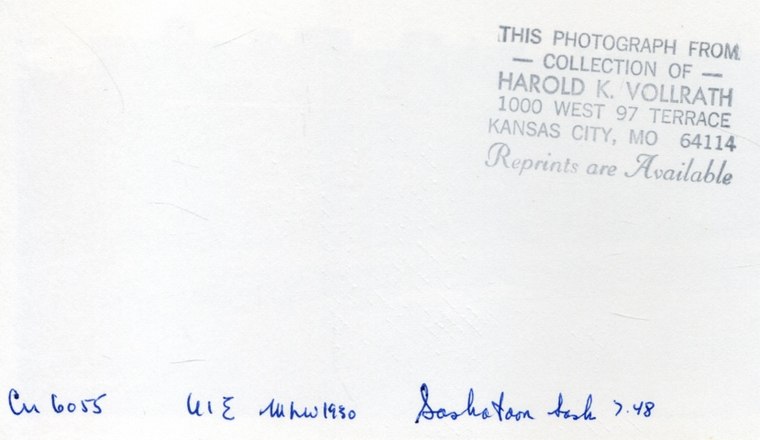 THIS PHOTOGRAPH FROM
— COLLECTION OF —
HAROLD K. VOLLRATH
1000 WEST 97 TERRACE
KANSAS CITY, MO 64114
Reprints are Available
Cn 6055 U1E MLW1930 Saskatoon Sask 7.48